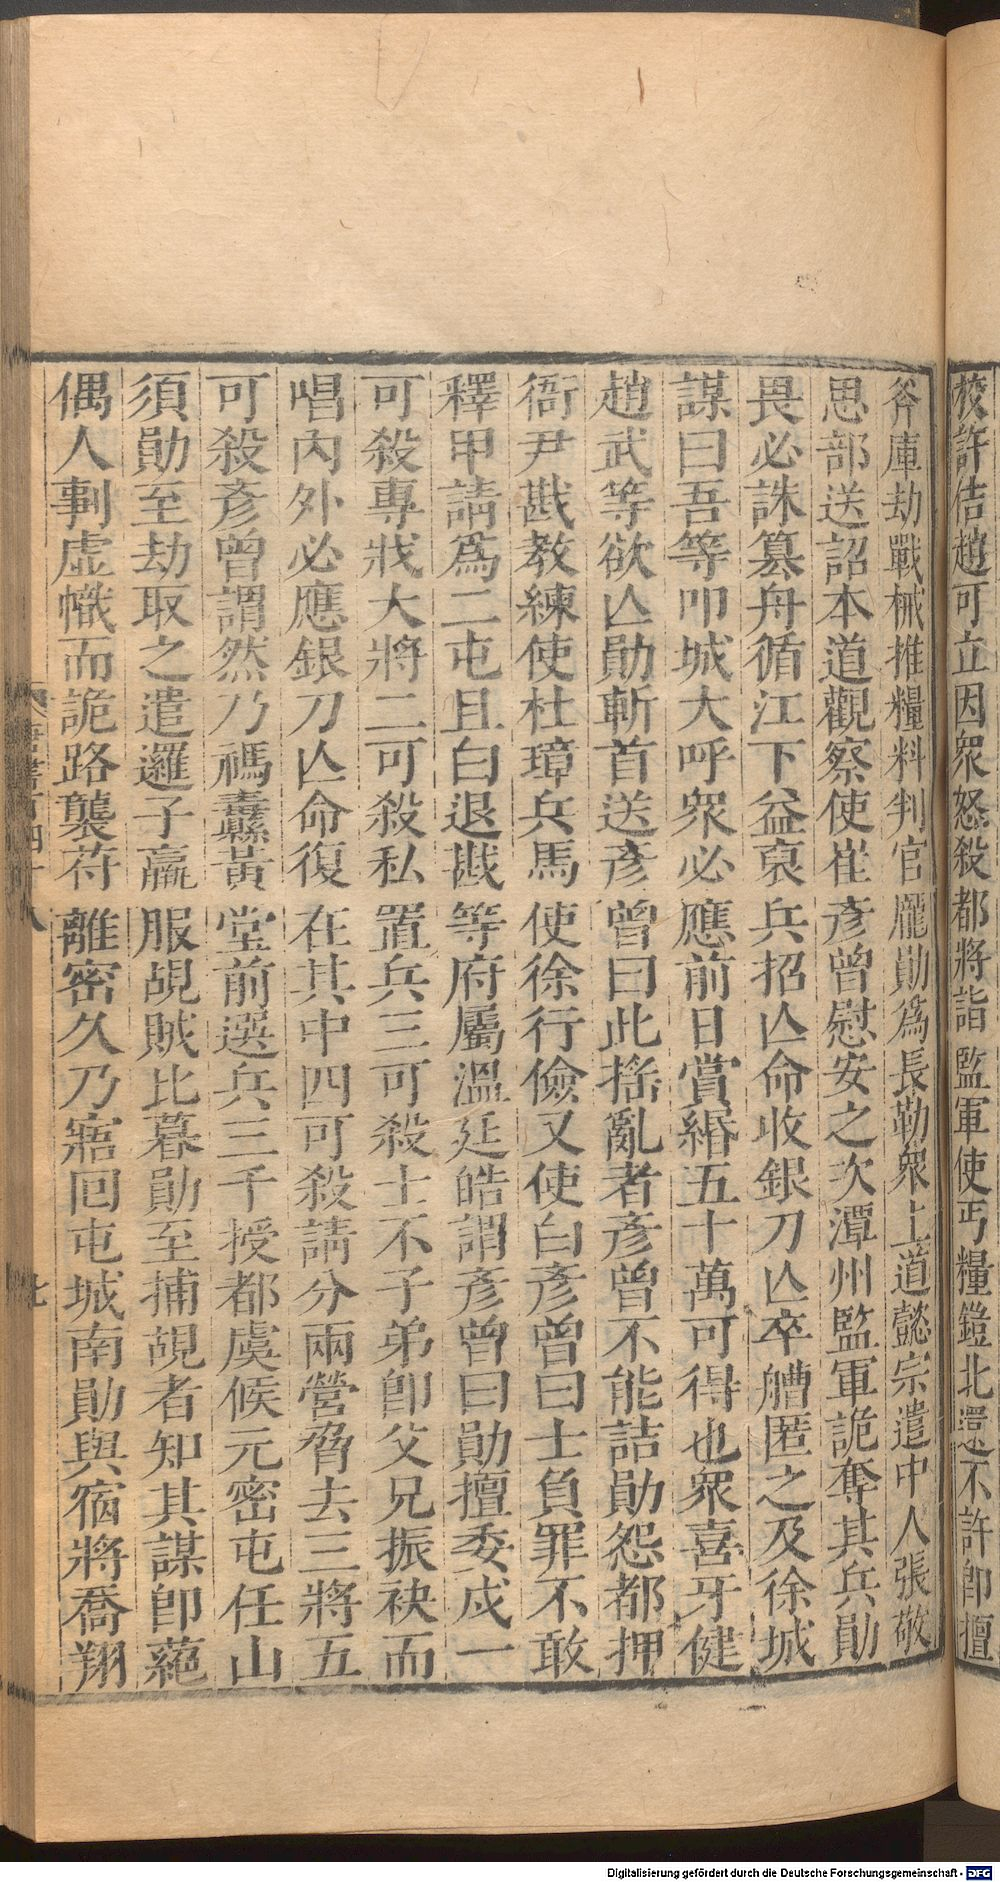 校許佶趙可立因衆怒殺都將詣監軍使丐糧鎧北還不許卽擅
斧庫劫戰械推糧料判官龐勛爲長勒衆上道懿宗遣中人張敬
思部送詔本道觀察使崔彥曾慰安之次潭州監軍詭奪其兵勛
畏必誅篡舟循江下益裒兵招亾命收銀刀亾卒艚匿之及徐城
謀曰吾等叩城大呼衆必應前日賞緡五十萬可得也衆喜牙健
趙武等欲亾勛斬首送彥曾曰此搖亂者彥曾不能詰勛怨都押
衙尹戡教練使杜璋兵馬使徐行儉又使白彥曾曰士負罪不敢
釋甲請爲二屯且白退戡等府屬溫廷皓謂彥曾曰勛擅委戍一
可殺專戕大將二可殺私置兵三可殺士不子弟卽父兄振袂而
唱內外必應銀刀亾命復在其中四可殺請分兩營脅去三將五
可殺彥曾謂然乃禡纛黃堂前選兵三千授都虞候元密屯任山
須勛至劫取之遣邏子羸服覘賊比暮勛至捕覘者知其謀卽蕝
偶人剚虛幟而詭路襲苻離密久乃寤回屯城南勛與宿將喬翔
唐書百四十八
Digitalisierung gefördert durch die Deutsche Forschungsgemeinschaft - DFG